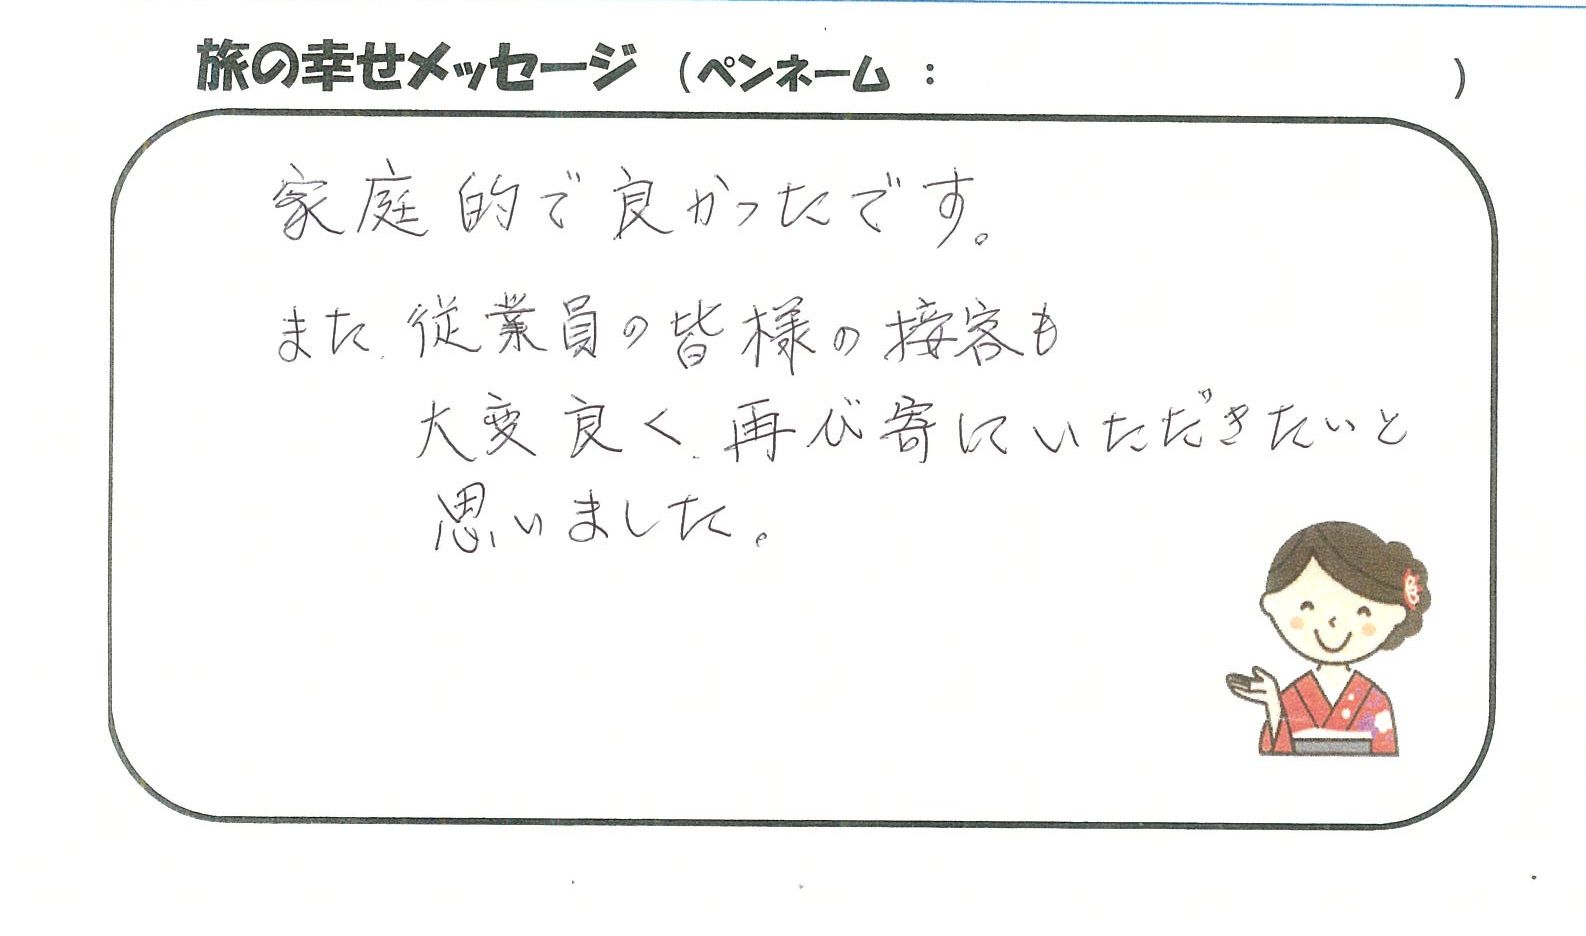 旅の幸せメッセージ (ペンネーム : )
家庭的で良かったです。
また、従業員の皆様の接客も
大変良く、再び寄にいただきたいと
思いました。